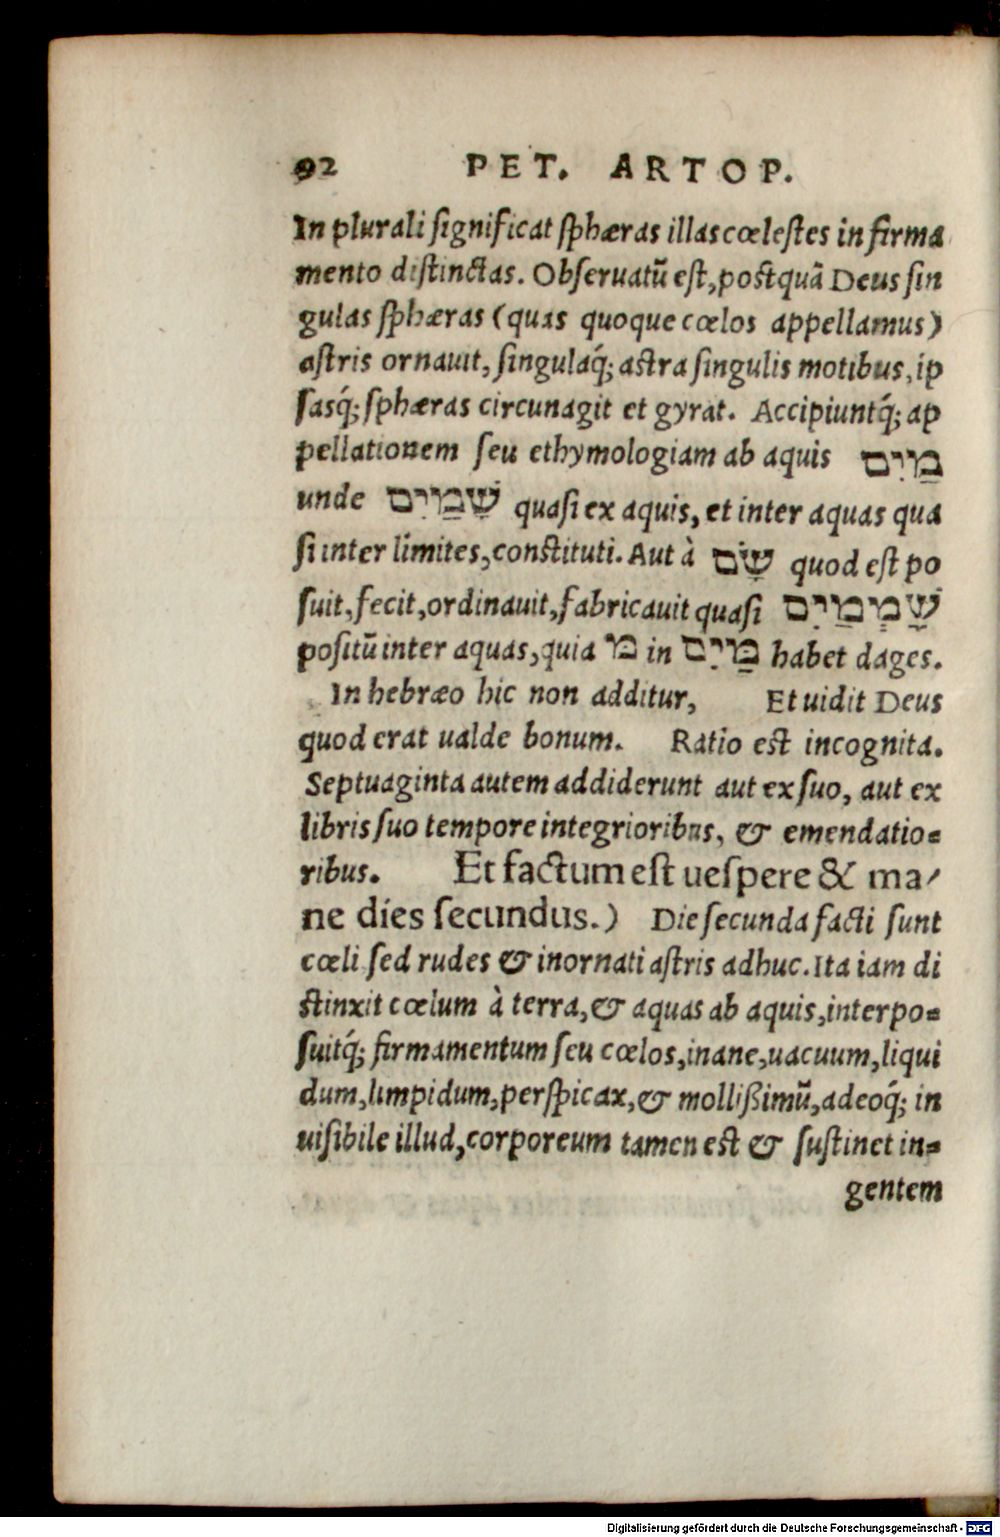 92 PET. ARTOP.
In plurali ſignificat ſphæras illas cœleſtes in firma
mento diſtinctas. Obſeruatū eſt, poſtquā Deus ſin
gulas ſphæras (quas quoque cœlos appellamus)
aſtris ornauit, ſingulaq́; aſtra ſingulis motibus, ip
ſasq́; ſphæras circunagit et gyrat. Accipiuntq́; ap
pellationem ſeu ethymologiam ab aquis מַיִם
unde שָׁמַיִם quaſi ex aquis, et inter aquas qua
ſi inter limites, conſtituti. Aut à שָׂם quod eſt po
ſuit, fecit, ordinauit, fabricauit quaſi שָׂמְמַיִם
poſitū inter aquas, quia מ in מַּיִם habet dages.
In hebræo hic non additur, Et uidit Deus
quod erat ualde bonum. Ratio eſt incognita.
Septuaginta autem addiderunt aut ex ſuo, aut ex
libris ſuo tempore integrioribus, & emendatio-
ribus. Et factum eſt ueſpere & ma-
ne dies ſecundus.) Die ſecunda facti ſunt
cœli ſed rudes & inornati aſtris adhuc. Ita iam di
ſtinxit cœlum à terra, & aquas ab aquis, interpo-
ſuitq́; firmamentum ſeu cœlos, inane, uacuum, liqui
dum, limpidum, perſpicax, & mollißimū, adeoq́; in
uiſibile illud, corporeum tamen eſt & ſuſtinet in-
gentem
Digitalisierung gefördert durch die Deutsche Forschungsgemeinschaft - DFG